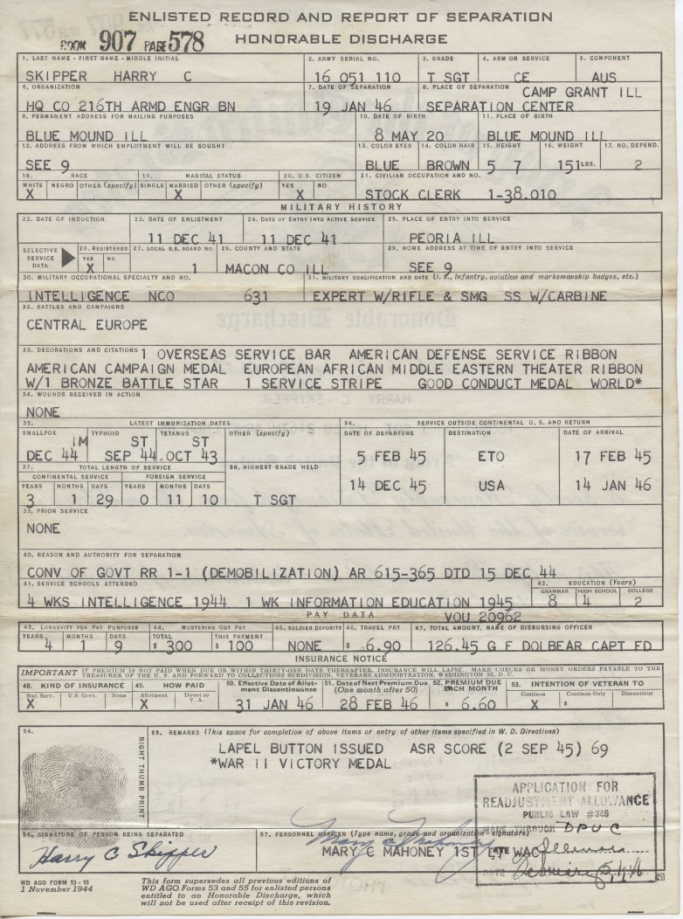 ENLISTED RECORD AND REPORT OF SEPARATION
HONORABLE DISCHARGE
BOOK 907 PAGE 578
1. LAST NAME - FIRST NAME - MIDDLE INITIAL 2. ARMY SERIAL NO. 3. GRADE 4. ARM OR SERVICE 5. COMPONENT
SKIPPER HARRY C 16 051 110 T SGT CE AUS
6. ORGANIZATION 7. DATE OF SEPARATION 8. PLACE OF SEPARATION CAMP GRANT ILL
HQ CO 216TH ARMD ENGR BN 19 JAN 46 SEPARATION CENTER
9. PERMANENT ADDRESS FOR MAILING PURPOSES 10. DATE OF BIRTH 11. PLACE OF BIRTH
BLUE MOUND ILL 8 MAY 20 BLUE MOUND ILL
12. ADDRESS FROM WHICH EMPLOYMENT WILL BE SOUGHT 13. COLOR EYES 14. COLOR HAIR 15. HEIGHT 16. WEIGHT 17. NO. DEPEND.
SEE 9 BLUE BROWN 5 7 151 LBS. 2
18. RACE 19. MARITAL STATUS 20. U.S. CITIZEN 21. CIVILIAN OCCUPATION AND NO.
WHITE NEGRO OTHER (specify) SINGLE MARRIED OTHER (specify) YES NO
X X X STOCK CLERK 1-38.010
MILITARY HISTORY
22. DATE OF INDUCTION 23. DATE OF ENLISTMENT 24. DATE OF ENTRY INTO ACTIVE SERVICE 25. PLACE OF ENTRY INTO SERVICE
11 DEC 41 11 DEC 41 PEORIA ILL
SELECTIVE SERVICE DATA 26. REGISTERED 27. LOCAL S.S. BOARD NO. 28. COUNTY AND STATE 29. HOME ADDRESS AT TIME OF ENTRY INTO SERVICE
YES NO
X 1 MACON CO ILL SEE 9
30. MILITARY OCCUPATIONAL SPECIALTY AND NO. 31. MILITARY QUALIFICATION AND DATE (i.e., infantry, aviation and marksmanship badges, etc.)
INTELLIGENCE NCO 631 EXPERT W/RIFLE & SMG SS W/CARBINE
32. BATTLES AND CAMPAIGNS
CENTRAL EUROPE
33. DECORATIONS AND CITATIONS 1 OVERSEAS SERVICE BAR AMERICAN DEFENSE SERVICE RIBBON
AMERICAN CAMPAIGN MEDAL EUROPEAN AFRICAN MIDDLE EASTERN THEATER RIBBON
W/1 BRONZE BATTLE STAR 1 SERVICE STRIPE GOOD CONDUCT MEDAL WORLD*
34. WOUNDS RECEIVED IN ACTION
NONE
35. LATEST IMMUNIZATION DATES 36. SERVICE OUTSIDE CONTINENTAL U. S. AND RETURN
SMALLPOX TYPHOID TETANUS OTHER (specify) DATE OF DEPARTURE DESTINATION DATE OF ARRIVAL
IM ST ST
DEC 44 SEP 44 OCT 43 5 FEB 45 ETO 17 FEB 45
37. TOTAL LENGTH OF SERVICE 38. HIGHEST GRADE HELD
CONTINENTAL SERVICE FOREIGN SERVICE
YEARS MONTHS DAYS YEARS MONTHS DAYS 14 DEC 45 USA 14 JAN 46
3 1 29 0 11 10 T SGT
39. PRIOR SERVICE
NONE
40. REASON AND AUTHORITY FOR SEPARATION
CONV OF GOVT RR 1-1 (DEMOBILIZATION) AR 615-365 DTD 15 DEC 44
41. SERVICE SCHOOLS ATTENDED 42. EDUCATION (Years)
GRAMMAR HIGH SCHOOL COLLEGE
4 WKS INTELLIGENCE 1944 1 WK INFORMATION EDUCATION 1945 8 4 2
PAY DATA VOU 20962
43. LONGEVITY FOR PAY PURPOSES 44. MUSTERING OUT PAY 45. SOLDIER DEPOSITS 46. TRAVEL PAY 47. TOTAL AMOUNT, NAME OF DISBURSING OFFICER
YEARS MONTHS DAYS TOTAL THIS PAYMENT
4 1 9 $ 300 $ 100 NONE $ 6.90 126.45 G F DOLBEAR CAPT FD
INSURANCE NOTICE
IMPORTANT IF PREMIUM IS NOT PAID WHEN DUE OR WITHIN THIRTY-ONE DAYS THEREAFTER, INSURANCE WILL LAPSE. MAKE CHECKS OR MONEY ORDERS PAYABLE TO THE
TREASURER OF THE U. S. AND FORWARD TO COLLECTIONS SUBDIVISION, VETERANS ADMINISTRATION, WASHINGTON 25, D. C.
48. KIND OF INSURANCE 49. HOW PAID 50. Effective Date of Allotment Discontinuance 51. Date of Next Premium Due (One month after 50) 52. PREMIUM DUE EACH MONTH 53. INTENTION OF VETERAN TO
Nat. Serv. U.S. Govt. None Allotment Direct to V. A. Continue Continue Only Discontinue
X X 31 JAN 46 28 FEB 46 $ 6.60 X $
54. 55. REMARKS (This space for completion of above items or entry of other items specified in W. D. Directives)
RIGHT THUMB PRINT
LAPEL BUTTON ISSUED ASR SCORE (2 SEP 45) 69
*WAR II VICTORY MEDAL
APPLICATION FOR
READJUSTMENT ALLOWANCE
PUBLIC LAW #346
MADE THROUGH DPUC
56. SIGNATURE OF PERSON BEING SEPARATED 57. PERSONNEL OFFICER (Type name, grade and organization - signature)
Harry C Skipper MARY E MAHONEY 1ST LT WAC
DATE February 5, 1946
WD AGO FORM 53-55
1 November 1944
This form supersedes all previous editions of
WD AGO Forms 53 and 55 for enlisted persons
entitled to an Honorable Discharge, which
will not be used after receipt of this revision.